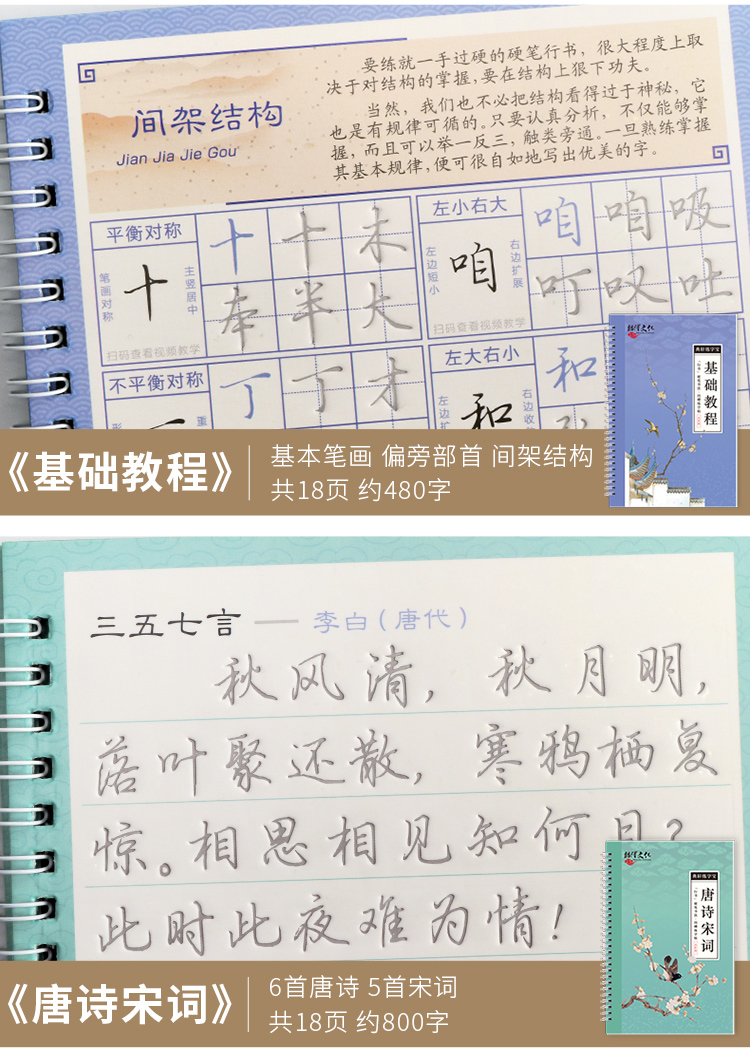 要练就一手过硬的硬笔行书，很大程度上取
决于对结构的掌握,要在结构上狠下功夫。
当然，我们也不必把结构看得过于神秘，它
也是有规律可循的。只要认真分析，不仅能够掌
握，而且可以举一反三，触类旁通。一旦熟练掌握
其基本规律，便可很自如地写出优美的字。
间架结构
Jian Jia Jie Gou
平衡对称
笔画对称
十
主竖居中
扫码查看视频教学
十 十 木
奉 半 大
左小右大
左边短小
咱
右边扩展
扫码查看视频教学
咱 咱 吸
叮 叹 吐
不平衡对称
丁 丁 才
左大右小
左边扩
和
右边收
和
基础教程
《基础教程》
基本笔画 偏旁部首 间架结构
共18页 约480字
三五七言 — 李白(唐代)
秋风清，秋月明，
落叶聚还散，寒鸦栖复
惊。相思相见知何日？
此时此夜难为情！
唐诗宋词
《唐诗宋词》
6首唐诗 5首宋词
共18页 约800字